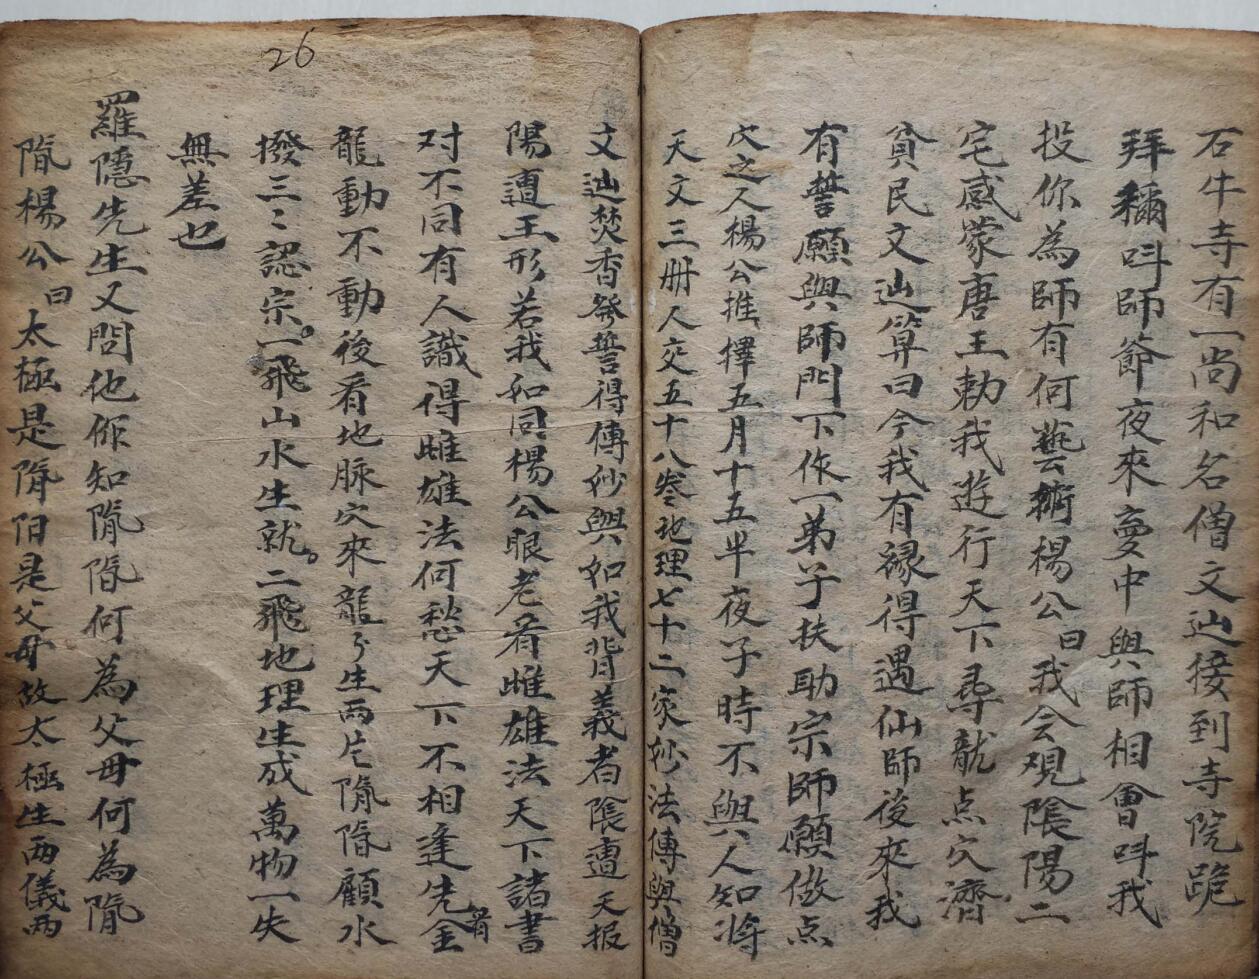 石牛寺有一尚和名僧文辿接到寺院跪
拜稱叫師爺夜來夢中與師相會叫我
投你為師有何藝術楊公曰我会覌陰陽二
宅感蒙唐王勅我遊行天下尋龍点穴濟
貧民文辿算曰今我有緣得遇仙師後來我
有誓願與師門下作一弟子扶助宗師願做点
穴之人楊公推擇五月十五半夜子時不與人知將
天文三册人交五十八卷地理七十二家妙法傳與僧
文辿焚香發誓得傳妙與如我背義者陰遭天报
陽遭王形若我如同楊公眼老看雌雄法天下諸書
对不同有人識得雌雄法何愁天下不相逢先看金
龍動不動後看地脉穴來龍身生両片陰陽顧水
撥三〻認宗。一飛山水生就。二飛地理生成萬物一失
無差也
26
羅隱先生又問他你知陰陽何為父毋何為陰
陽楊公曰太極是陰陽是父毋故太極生両儀両